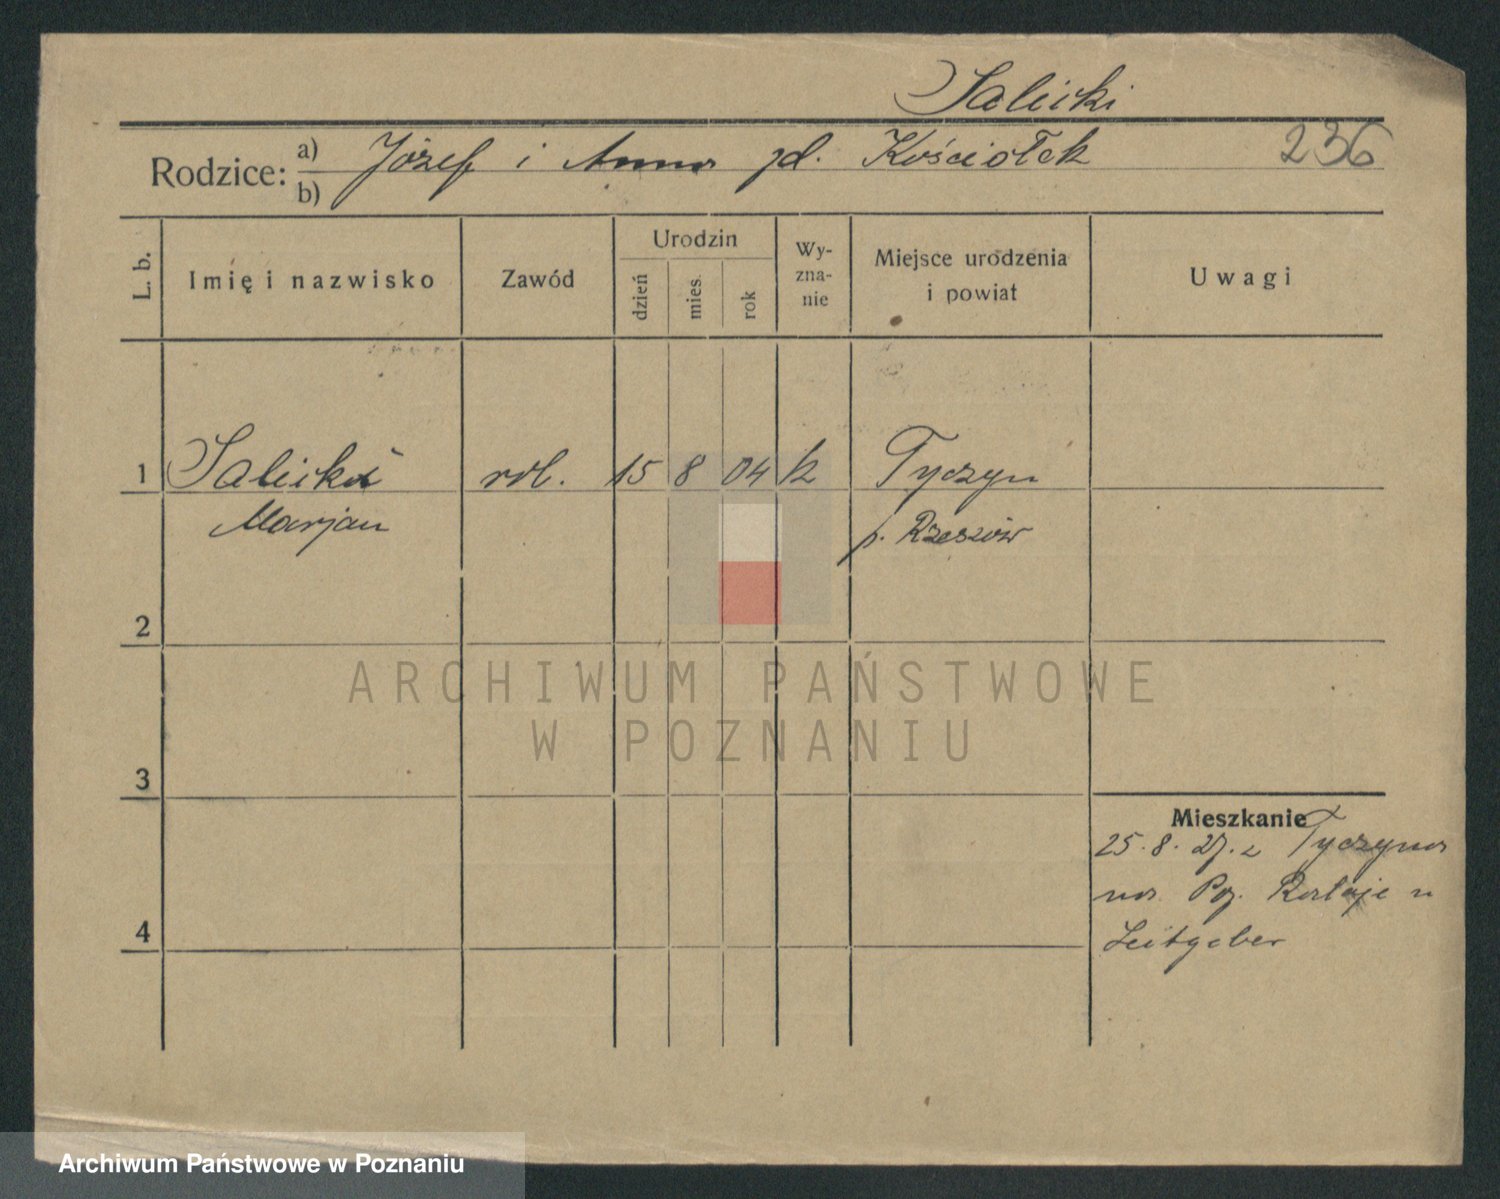 Salicki
Rodzice: a) Józef i Anna zd. Kościołek 236
b)
L. b.
Imię i nazwisko
Zawód
Urodzin
dzień
mies.
rok
Wy-
zna-
nie
Miejsce urodzenia
i powiat
Uwagi
1 Salicki rol. 15 8 04 k Tyczyn
Marjan p. Rzeszów
2
ARCHIWUM PAŃSTWOWE
W POZNANIU
3
Mieszkanie
25. 8. 27. z Tyczyna
na Rataje u
4 Leitgeber
Archiwum Państwowe w Poznaniu